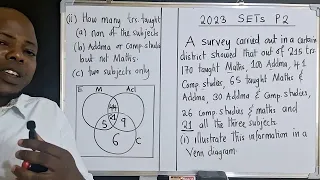 (ii) How many trs. taught
(a) non of the subjects
(b) Addma or comp. studies
but not Maths.
(c) two subjects only
M
Ad
21
5
9
6
C
2023 SETs P2
A survey carried out in a certain
district showed that out of 215 trs.
170 taught Maths, 100 Addma, 41
Comp. studies, 65 taught Maths &
Addma, 30 Addma & Comp. studies,
26 comp. studies & maths and
21 all the three subjects.
(i) illustrate this information in a
Venn diagram.